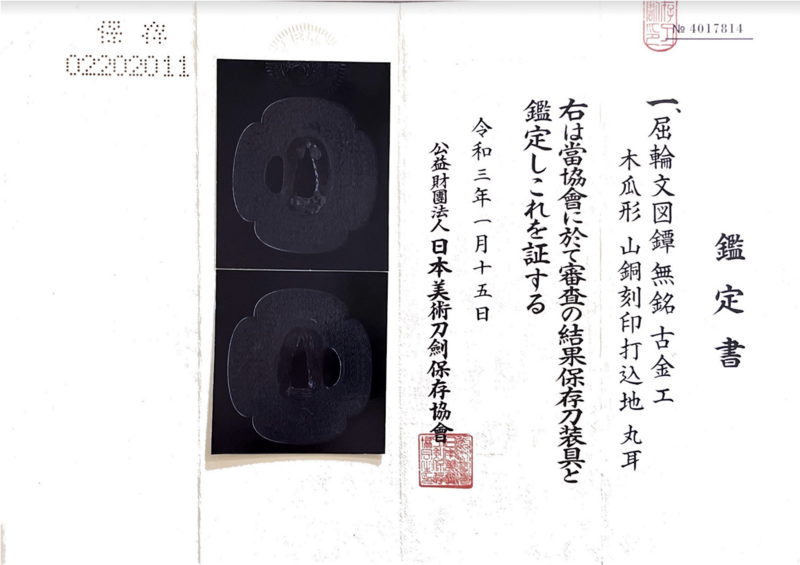 № 4017814
鑑定書
一、屈輪文図鐔 無銘 古金工
木瓜形 山銅刻印打込地 丸耳
右は當協會に於て審査の結果保存刀装具と
鑑定しこれを証する
令和三年一月十五日
公益財團法人 日本美術刀劍保存協會
保存
02202011